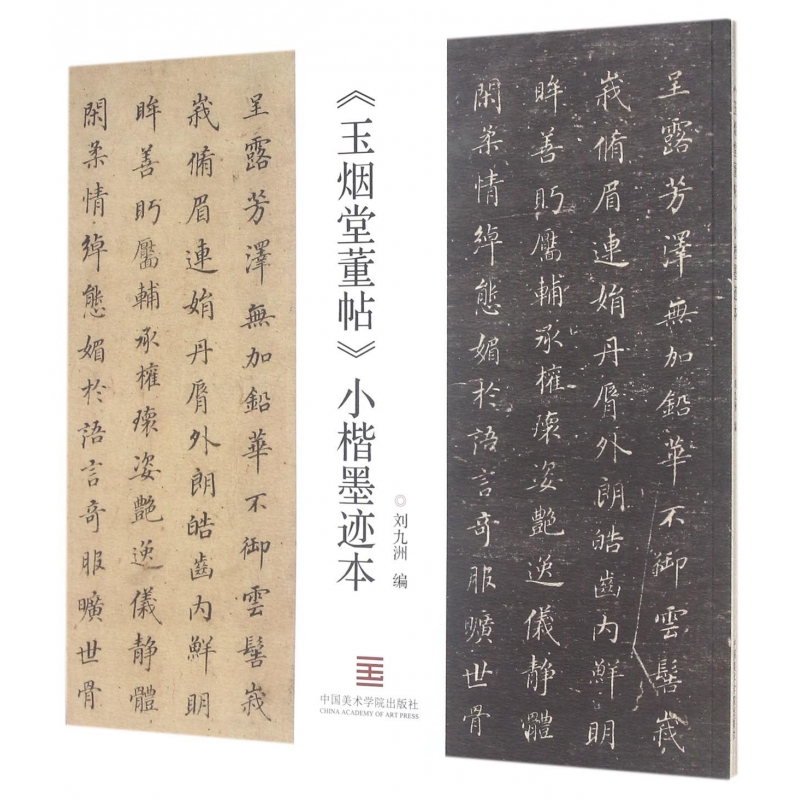 呈露芳澤無加鉛華不御雲髻峩
峩脩眉連娟丹脣外朗皓齒内鮮明
眸善眄靨輔承權瓌姿艶逸儀静體
閑柔情綽態媚於語言奇服曠世骨
《玉烟堂董帖》小楷墨迹本
◎刘九洲 编
中国美术学院出版社
CHINA ACADEMY OF ART PRESS
呈露芳澤無加鉛華不御雲髻峩
峩脩眉連娟丹脣外朗皓齒内鮮明
眸善眄靨輔承權瓌姿艶逸儀静體
閑柔情綽態媚於語言奇服曠世骨